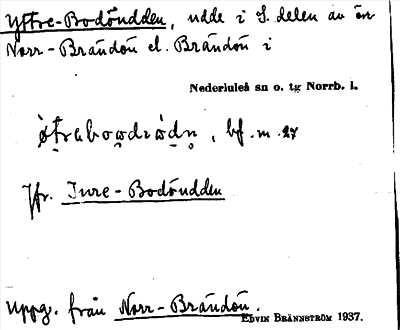 Yttre-Bodöudden, udde i S. delen av ön
Norr-Brändön el. Brändön i
Nederluleå sn o. tg Norrb. l.
bf. m. 27
Jfr. Inre-Bodöudden
Uppg. från Norr-Brändön.
EDVIN BRÄNNSTRÖM 1937.